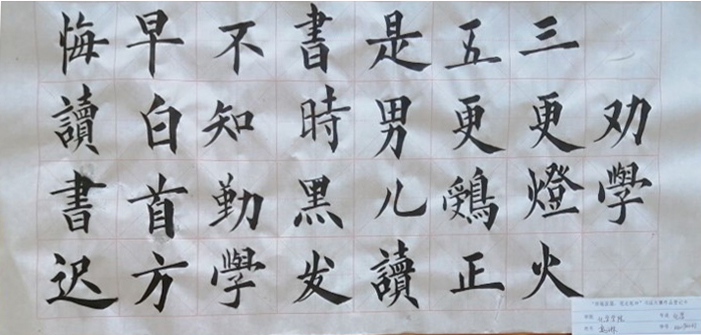 劝學
三更燈火
五更鷄正
是男儿讀
書時黑发
不知勤學
早白首方
悔讀書迟